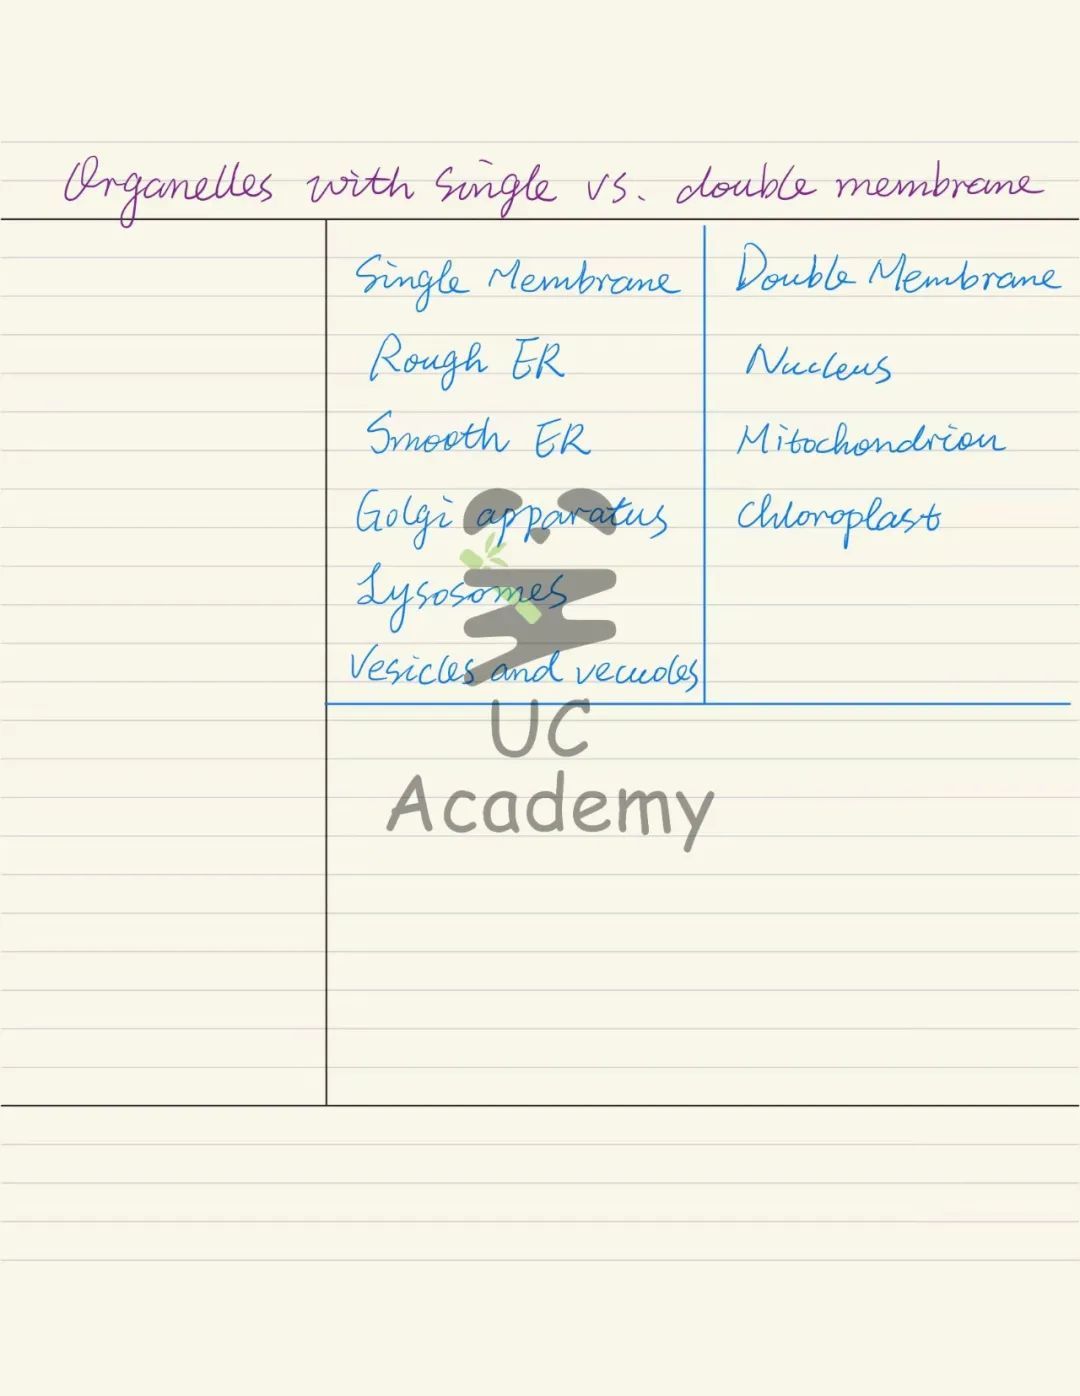 Organelles with single vs. double membrane
Single Membrane
Double Membrane
Rough ER
Nucleus
Smooth ER
Mitochondrion
Golgi apparatus
Chloroplast
Lysosomes
Vesicles and vecuoles
UC
Academy